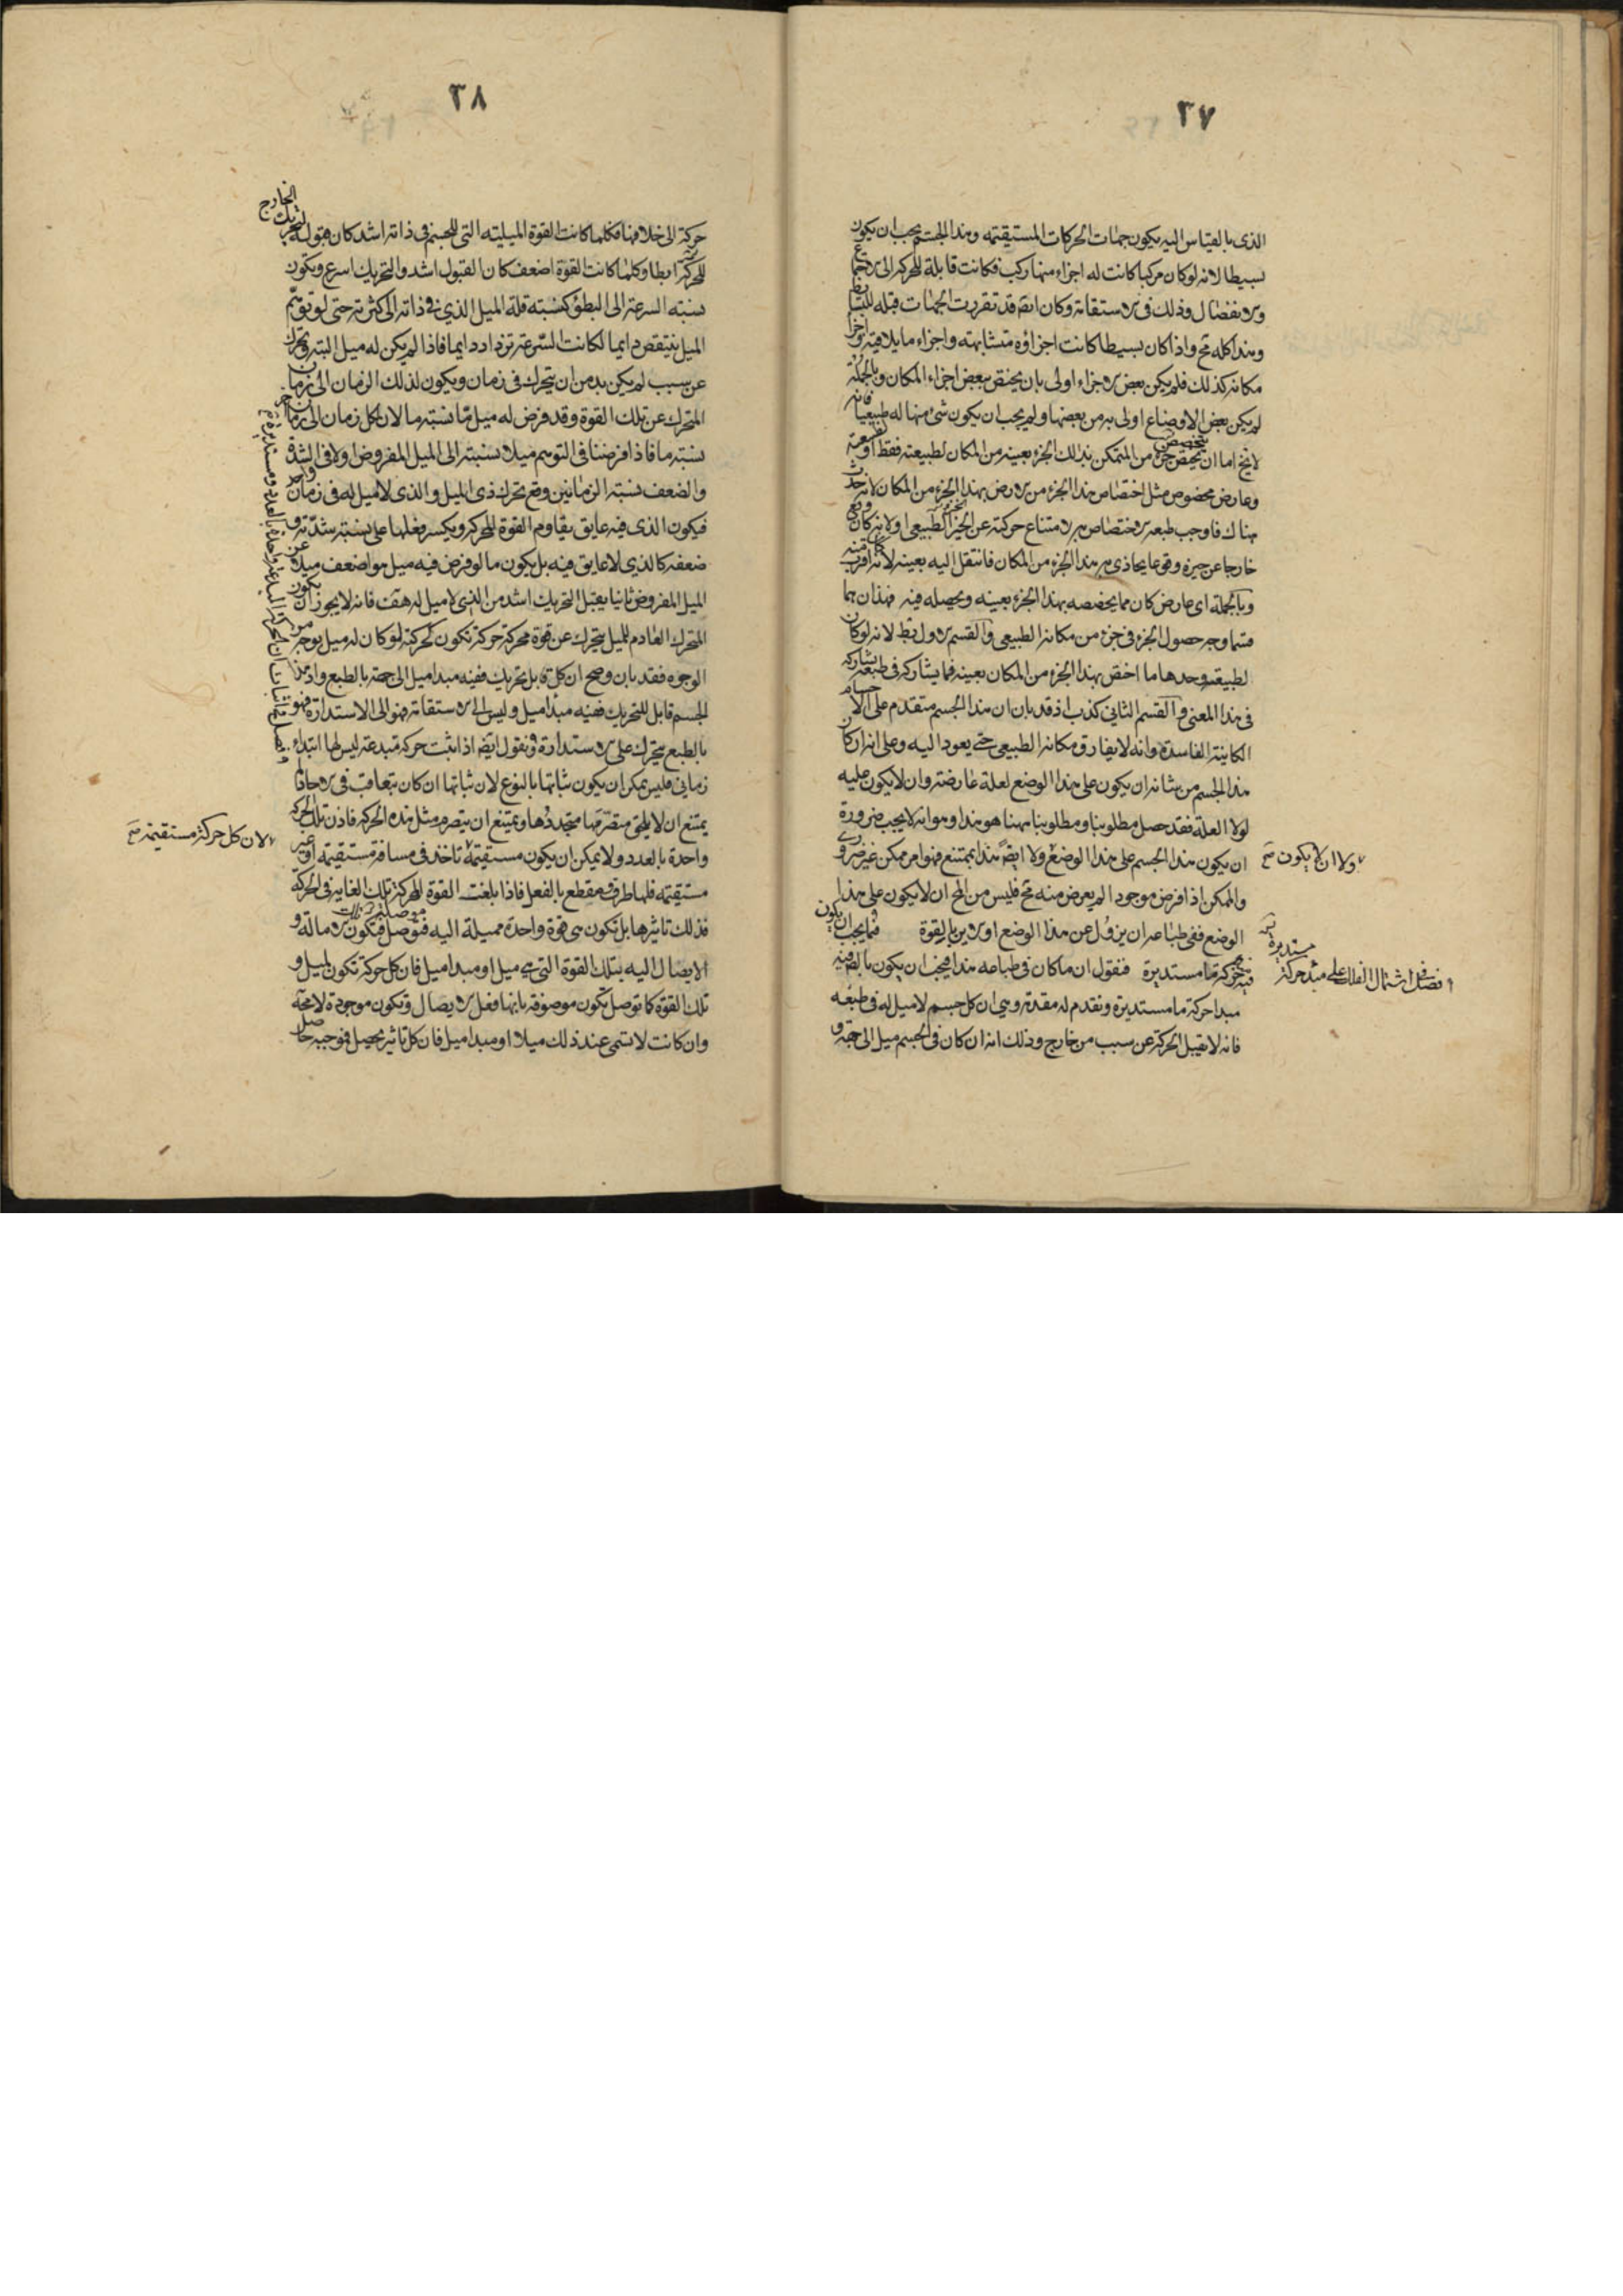 ٣٧
الذى بالقياس اليه يكون جهات الحركات المستقيمه وهذا الجسم يجب ان يكون
بسيطا لانه لو كان مركبا كانت له اجزاء منها ركب فكانت قابلة للحركه الى الاجتماع
والانفصال وذلك فى الاستقامة وكان ايضا قد تقررت الجهات قبله للبسايط
وهذا كله مح واذا كان بسيطا كانت اجزاؤه متشابهة واجزاء ما يلاقيه واجزاء
مكانه كذلك فلم يكن بعض الاجزاء اولى بان يختص ببعض اجزاء المكان وبالجملة
لم يكن بعض الاوضاع اولى به من بعضها ولم يجب ان يكون شئ منها له طبيعيا فانه
لا يخ اما ان يختص جزء من المتمكن بذلك الجزء بعينه من المكان لطبيعته فقط او لطبيعته
وعارض مخصوص مثل اختصاص هذا الجزء من الارض بهذا الجزء من المكان لانه حدث
هناك فاوجب طبعه الاختصاص به لامتناع حركته عن الحيز الطبيعى او لانه كان
خارجا عن حيزه وقوعا يحاذى به هذا الجزء من المكان فانتقل اليه بعينه لانه اقرب منه
وبالجملة اى عارض كان مما يخصصه بهذا الجزء بعينه ويحصله فيه فهذان هما
قسما وجه حصول الجزء فى جزء من مكانه الطبيعى والقسم الاول بط لانه لو كان
لطبيعته وحدها ما اختص بهذا الجزء من المكان بعينه فما يشاركه فى طبعه يشاركه
فى هذا المعنى والقسم الثانى كذب اذ قد بان ان هذا الجسم متقدم على الاجسام
الكاينة الفاسدة وانه لا يفارق مكانه الطبيعى حتى يعود اليه وعلى انه ان كان
هذا الجسم من شانه ان يكون على هذا الوضع لعلة عارضة وان لا يكون عليه
لولا العلة فقد حصل مطلوبنا ومطلوبنا ههنا هو هذا وهو انه لا يجب ضرورة
ان يكون هذا الجسم على هذا الوضع ولا ايضا هذا بممتنع فهو امر ممكن غير ضرورى
ولا ان لا يكون صح
والممكن اذا فرض موجودا لم يعرض منه مح فليس من المح ان لا يكون على هذا
الوضع ففى طباعه ان يزول عن هذا الوضع او الاين بالقوة فما يجب ان يكون
فيه حركة ما مستديرة فنقول ان ما كان فى طباعه هذا فيجب ان يكون بالضر فيه
فصل فى اشتمال الفلك على مبدء حركة مستديرة
مبدا حركة ما مستديرة ونقدم له مقدمة وهى ان كل جسم لا ميل له فى طبعه
فانه لا يقبل الحركة عن سبب من خارج وذلك انه ان كان فى الجسم ميل الى جهة و
٣٨
حركة الى خلافها فكلما كانت القوة الميلية التى للجسم فى ذاته اشد كان قبوله لتحريك الخارج
للحركة ابطا وكلما كانت القوة اضعف كان القبول اشد والتحريك اسرع ويكون
نسبة السرعة الى البطؤ كنسبة قلة الميل الذي فى ذاته الى كثرته حتى لو توهم
الميل ينتقص دايما لكانت السرعة تزداد دايما فاذا لم يكن له ميل البته وتحرك
عن سبب لم يكن بد من ان يتحرك فى زمان ويكون لذلك الزمان الى زمان
المتحرك عن تلك القوة وقد فرض له ميل ما نسبة ما لان لكل زمان الى زمان اخر
نسبة ما فاذا فرضنا فى التوهم ميلا نسبته الى الميل المفروض اولا فى الشدة
والضعف نسبة الزمانين وقع تحرك ذى الميل والذى لا ميل له فى زمان واحد
فيكون الذى فيه عايق يقاوم القوة المحركة ويكسر فعلها على نسبة شدته و
ضعفه كالذي لا عايق فيه بل يكون ما لو فرض فيه ميل هو اضعف ميلا عن
الميل المفروض ثانيا يقبل التحريك اشد من الذي لا ميل له هف فانه لا يجوز ان يكون
المتحرك العادم للميل يتحرك عن قوة محركة حركة تكون كحركته لو كان له ميل بوجه من
الوجوه فقد بان وصح ان كل قابل تحريك ففيه مبدا ميل الى جهة بالطبع واذ هذا
الجسم قابل للتحريك ففيه مبدا ميل وليس الى الاستقامة فهو الى الاستدارة فهو
بالطبع يتحرك على الاستدارة ونقول ايضا اذا ثبت حركة مبدعة ليس لها ابتداء
زمانى فليس يمكن ان يكون ثباتها بالنوع لان ثباتها ان كان بتعاقب فى الاحاد
يمتنع ان لا يلحق متصرمها متجددها ويمتنع ان يتصرم مثل هذه الحركة فاذن تلك الحركة
واحدة بالعدد ولا يمكن ان يكون مستقيمة تاخذ فى مسافة مستقيمة او غير
لان كل حركة مستقيمة صح
مستقيمة فلها طرف ومقطع بالفعل فاذا بلغت القوة المحركة تلك الغاية فى الحركة
فذلك تاثيرها بل تكون هى قوة واحدة مميلة اليه فتوصل فتكون الامالة و
الايصال اليه بتلك القوة التى هى ميل او مبدا ميل فان كل حركة تكون لميل و
تلك القوة كما توصل تكون موصوفة بانها فعل الايصال وتكون موجودة لا محة
وان كانت لا تسمى عند ذلك ميلا او مبدا ميل فان كل تاثير يحصل فموجبه حاصل